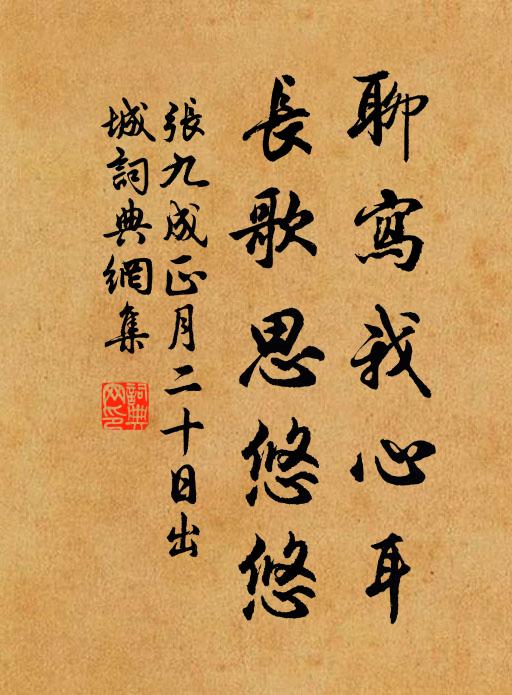 聊寫我心耳
長歌思悠悠
張九成正月二十日出
城詞典網集
詞典
网印